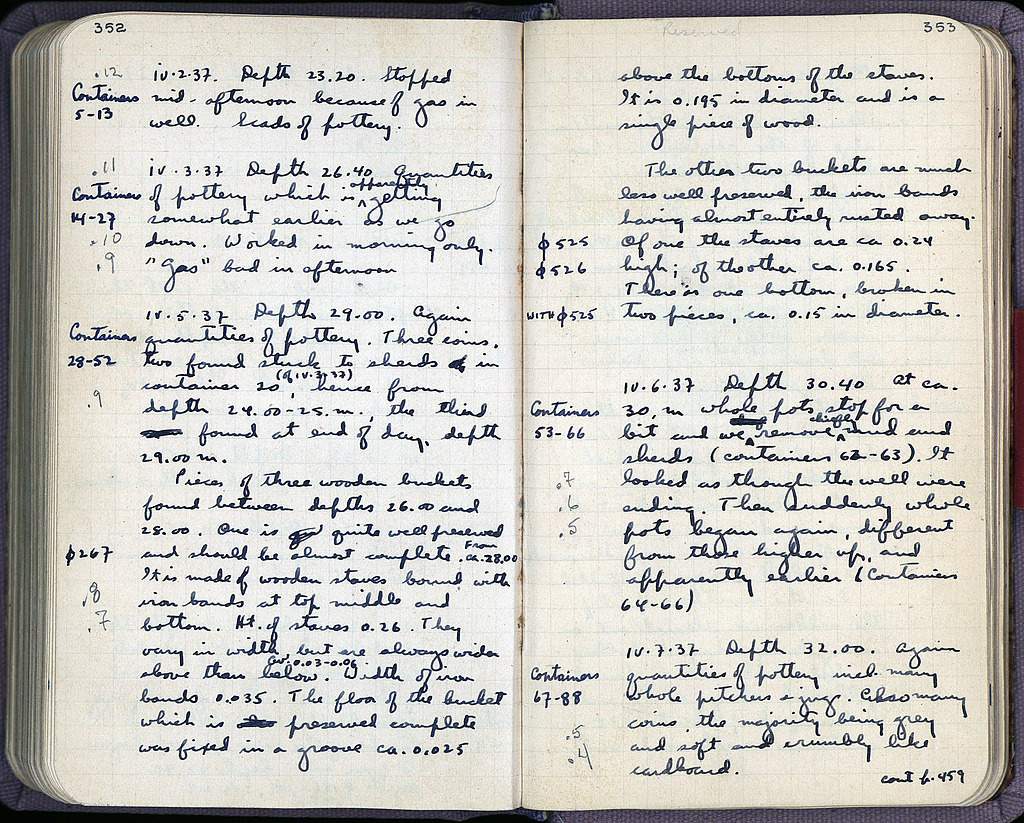 352
.12 iv.2.37. Depth 23.20. Stopped
Containers mid-afternoon because of gas in
5-13 well. Scads of pottery.
.11 iv.3.37 Depth 26.40 Quantities
apparently
Containers of pottery which is getting
14-27 somewhat earlier as we go
.10 down. Worked in morning only.
.9 "Gas" bad in afternoon
iv.5.37 Depth 29.00. Again
Containers quantities of pottery. Three coins,
28-52 two found stuck to sherds in
(of iv.3.37)
container 20, hence from
.9 depth 24.00-25. m., the third
found at end of day, depth
29.00 m.
Pieces of three wooden buckets
found between depths 26.00 and
28.00. One is quite well preserved
ϕ267 and should be almost complete. From ca. 28.00
It is made of wooden staves bound with
.8 iron bands at top middle and
.7 bottom. Ht. of staves 0.26. They
vary in width, but are always wider
av. 0.03-0.06.
above than below. Width of iron
bands 0.035. The floor of the bucket
which is preserved complete
was fixed in a groove ca. 0.025
Reserved
353
above the bottoms of the staves.
It is 0.195 in diameter and is a
single piece of wood.
The other two buckets are much
less well preserved, the iron bands
having almost entirely rusted away.
ϕ525 Of one the staves are ca 0.24
ϕ526 high; of the other ca. 0.165.
There is one bottom, broken in
WITH ϕ525 two pieces, ca. 0.15 in diameter.
iv.6.37 Depth 30.40 At ca.
Containers 30. m whole pots stop for a
chiefly
53-66 bit and we remove mud and
sherds (containers 62-63). It
.7 looked as though the well were
.6 ending. Then suddenly whole
.5 pots began again, different
from those higher up, and
apparently earlier (Containers
64-66)
iv.7.37 Depth 32.00. Again
Containers quantities of pottery incl. many
67-88 whole pitchers & jugs. Also many
coins, the majority being grey
.5 and soft and crumbly like
.4 cardboard.
cont p. 459